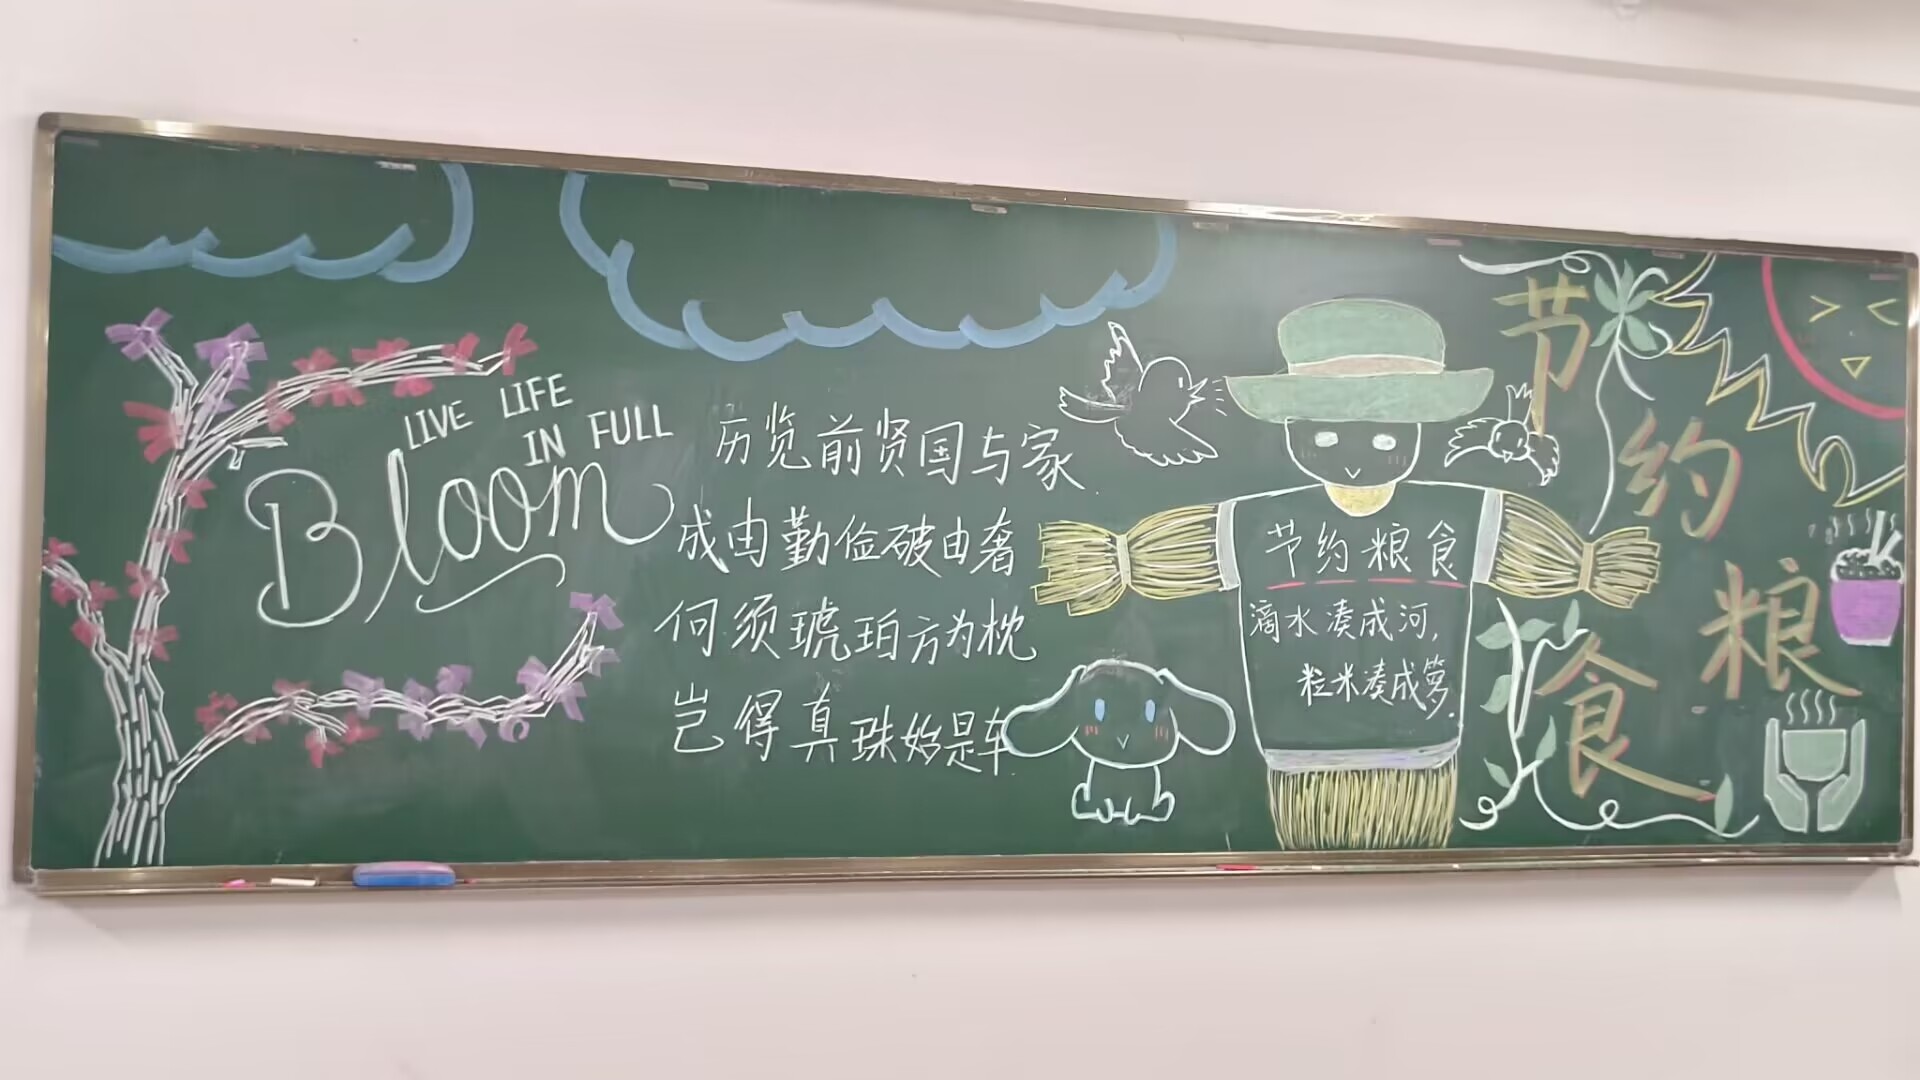 LIVE LIFE
IN FULL
Bloom
历览前贤国与家
成由勤俭破由奢
何须琥珀方为枕
岂得真珠始是车
节约粮食
滴水凑成河,
粒米凑成箩.
节约粮食